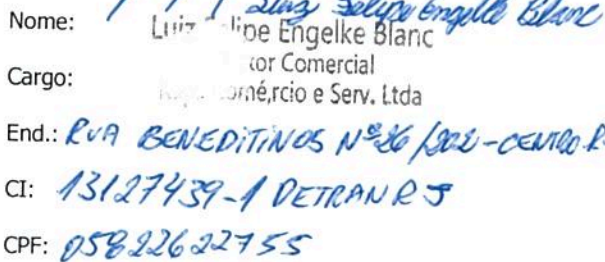 Luiz Felipe Engelke Blanc
Nome:
Luiz Felipe Engelke Blanc
tor Comercial
Cargo:
omércio e Serv. Ltda
End.: RUA BENEDITINOS Nº 26/202 - CENTRO R
CI: 13127439-1 DETRAN RJ
CPF: 05822622755